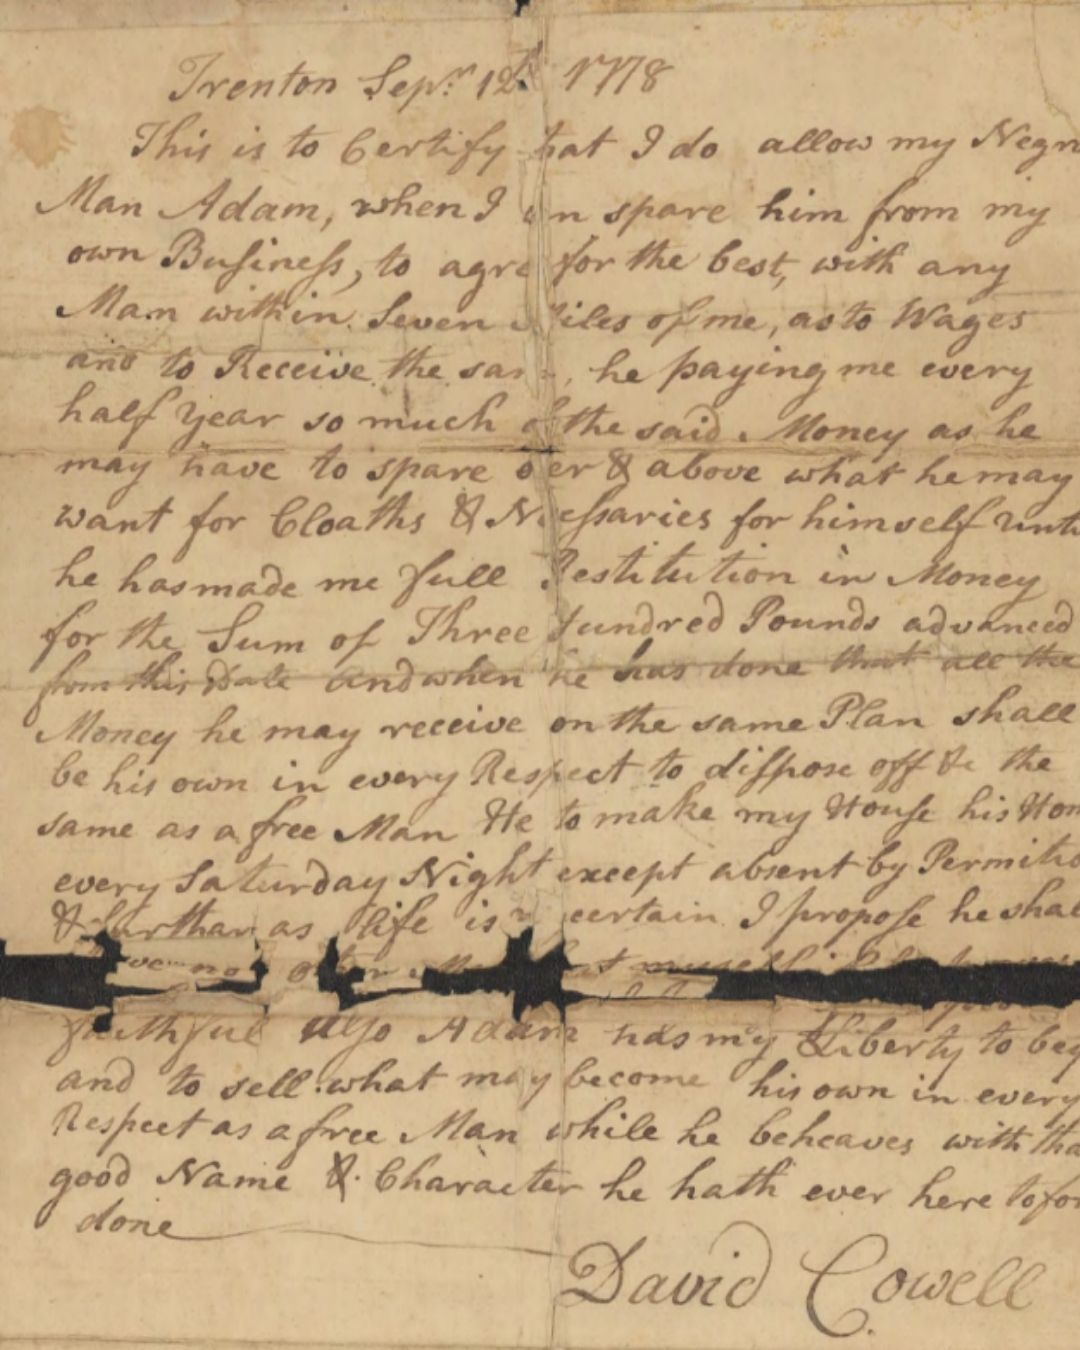 Trenton Sepr. 12th 1778
This is to Certify hat I do allow my Negr
Man Adam, when I n spare him from my
own Business, to agre for the best, with any
Man within Seven Miles of me, as to Wages
and to Receive the sa , he paying me every
half Year so much of the said Money as he
may have to spare over & above what he may
want for Cloaths & Necessaries for himself unt
he has made me full Restitution in Money
for the Sum of Three Hundred Pounds advanced
from this Date and when he has done that all the
Money he may receive on the same Plan shall
be his own in every Respect to dispose off &c the
same as a free Man He to make my House his Hom
every Saturday Night except absent by Permitio
& furthar as life is certain I propose he shal
no other myself
faithful Also Adam has my Liberty to
and to sell what may become his own in every
Respect as a free Man while he beheaves with tha
good Name & Character he hath ever here tofor
done
David Cowell